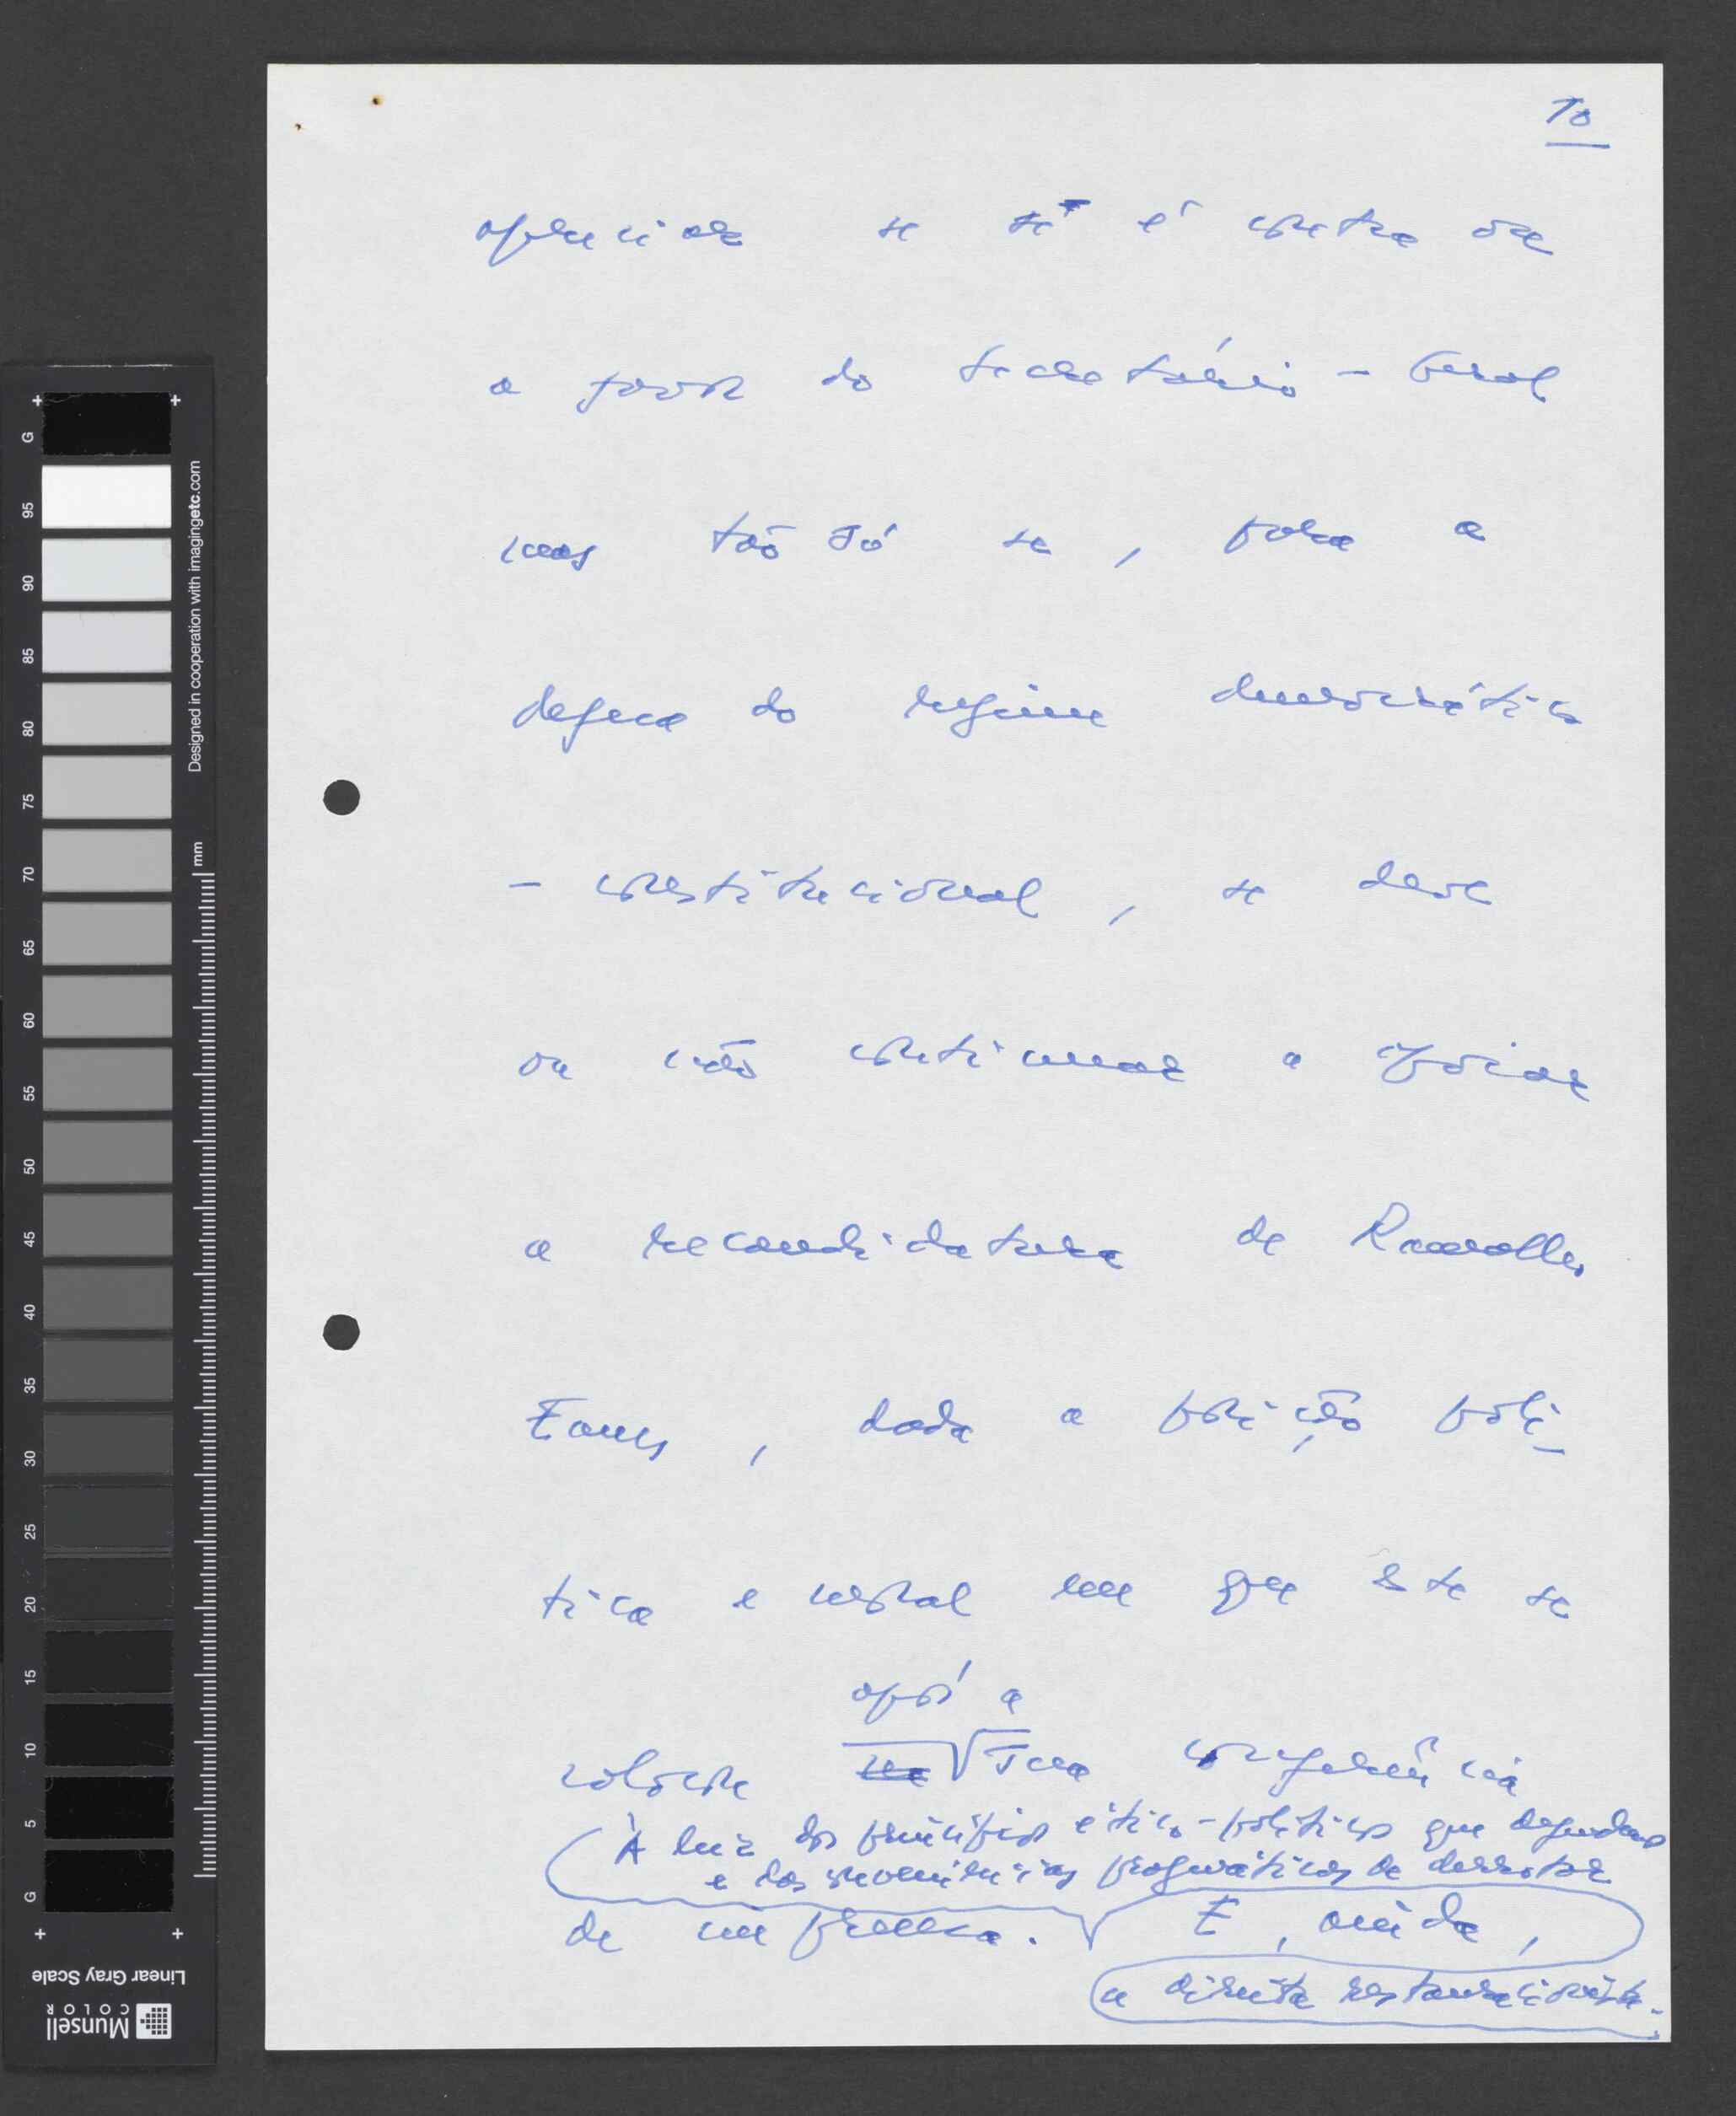 10
apreciar se se é contra ou
a favor do Secretário-Geral
mas tão só se, para a
defesa do regime democrático
- constitucional, se deve
ou não continuar a apoiar
a recandidatura de Ramalho
Eanes, dada a posição polí-
tica e moral em que este se
após a
coloca sua conferência
À luz dos princípios ético-políticos que defendemos
e das conveniências pragmáticas de derrotar
de imprensa. E, ainda,
a direita restauracionista.
G 95 90 85 80 75 70 65 60 55 50 45 40 35 30 25 20 15 10 5 G
mm
Designed in cooperation with imagingetc.com
Linear Gray Scale
Munsell
COLOR